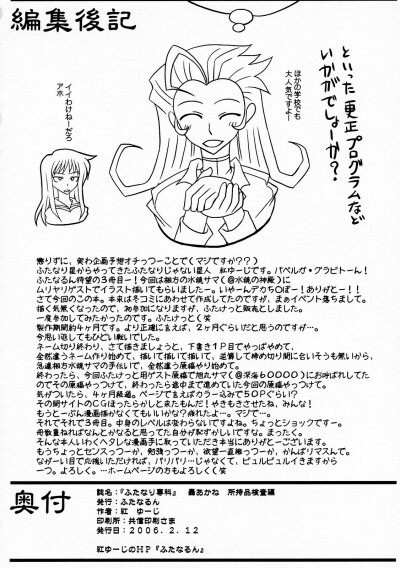 編集後記
といった更正プログラムなど
いかがでしょーか？
ほかの学校でも
大人気ですよー
イイわけねーだろ
アホ
懲りずに、実わ企画予想オチっつーことで(マジですか？？)
ふたなり星からやってきたふたなりじゃない星人　紅ゆーじです。バベルガ・グラビトーん！
ふたなるん待望の3冊目ー！今回は相方の水鏡サマ(@水鏡の神殿)に
ムリヤリゲストでイラスト描いてもらいましたー。いやーんデカち○ぽー！ありがとー！！
さて今回のこの本。本来は冬コミにあわせて作成してたのですが、まぁイベント落ちまして。
描く気無くなったので、初参加になりますが、ふたけっとに販売としました。
一度参加してみたかったのです。ふたけっとく笑
製作期間約4ヶ月です。より正確に言えば、2ヶ月ぐらいだと思うのですが…。
今思い返してもひどい戦いでした。
ネーム切り終わり、さて描きましょうと、下書き1P目でやっぱやめて、
全然違うネーム作り始めて、描いて描いて描いて、逆算して締め切り間に合いそうも無いから、
急遽相方水鏡サマの手伝いで、全然違う原稿やり始めて。
終わったら、今回ふたけっと用ゲスト原稿で旭丸サマ(@深海6○○○○)にお呼ばれしてた
のでその原稿やっつけて、終わったら途中まで進めていた今回の原稿やっつけて。
気がついたら、4ヶ月経過。ページで言えばカラー込みで50Pぐらい？
その間サイトのCGほったらかしと来たもんだ！やきもきさせたね、みんな！
もうとーぶん漫画描かなくてもいいかな？疲れたよ…。マジで…。
それでそれで3冊目。中身のレベルは変わらないですよね。ちょっとショックですー。
冊数重ねればなんとかなると思ってた自分が恥ずかしいですな。まったく。
そんな本人いわくヘタレな漫画手に取っていただき本当にありがとーございます。
もうちょっとセンスっつーか、勉強っつーか、欲望一直線っつーか、がんばりマスんで。
ながーい目で応援いただければ、バリバリ…じゃなくて、ピュルピュルイきますから
一つ。よろしく。…ホームページの方もよろしくく笑
奥付
誌名：『ふたなり専科』　轟あかね　所持品検査編
発行：ふたなるん
作者：紅　ゆーじ
印刷所：共信印刷さま
発行日：2006.2.12
紅ゆーじのHP『ふたなるん』